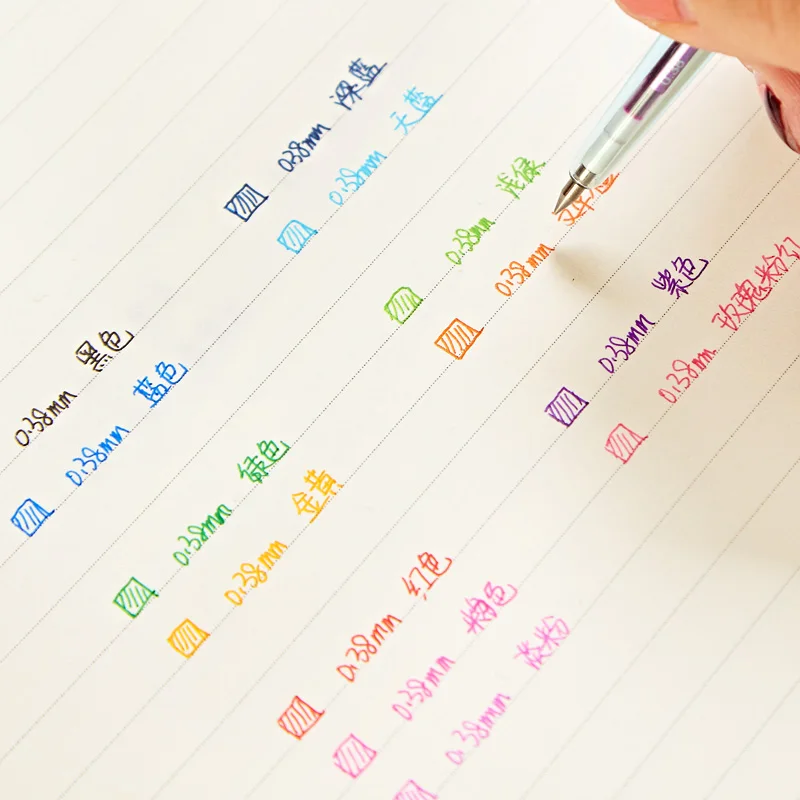 0.38mm 深蓝
0.38mm 天蓝
0.38mm 浅绿
0.38mm
0.38mm 紫色
0.38mm 玫瑰粉红
0.38mm 黑色
0.38mm 蓝色
0.38mm 绿色
0.38mm 金黄
0.38mm 红色
0.38mm 粉色
0.38mm 淡粉